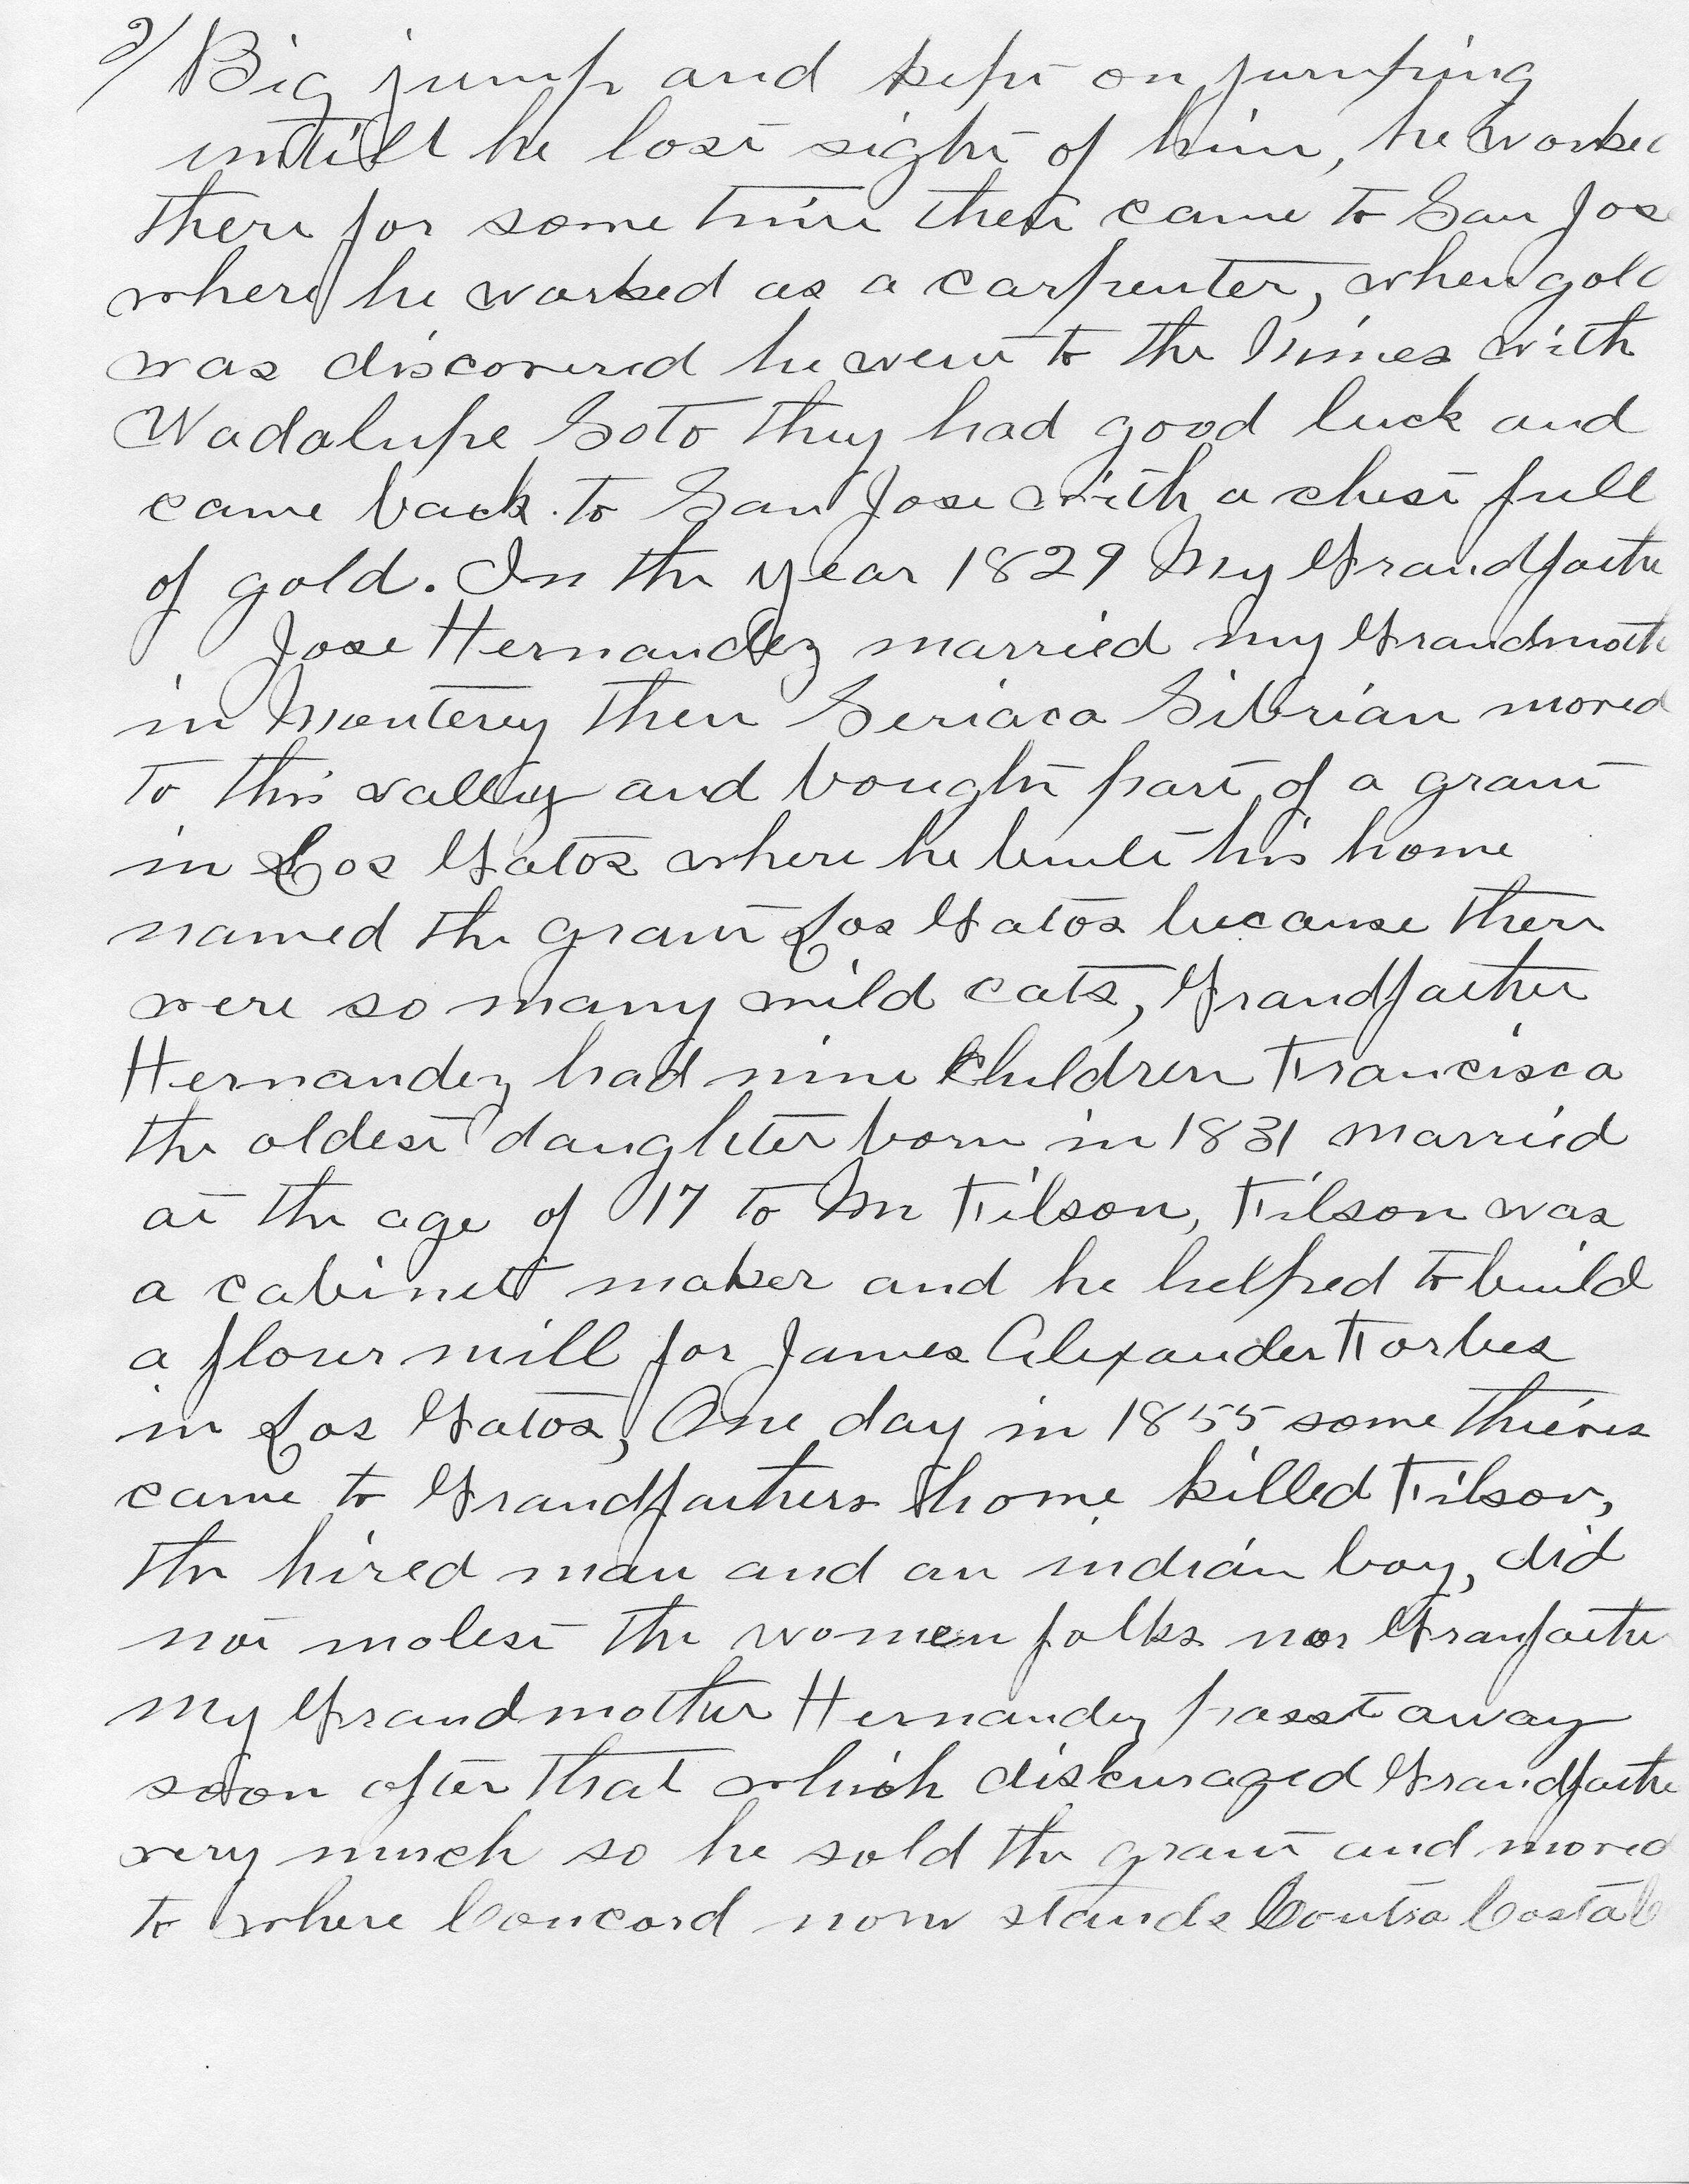 2/ Big jump and kept on jumping
untill he lost sight of him, he worked
there for some time then came to San Jose
where he worked as a carpenter, when gold
was discovered he went to the Mines with
Wadalupe Soto they had good luck and
came back to San Jose with a chest full
of gold. In the year 1829 My Grandfathe
Jose Hernandez married my Grandmoth
in Monterey then Seriaca Sibrian moved
to this valley and bought part of a grant
in Los Gatos where he built his home
named the grant Los Gatos because there
were so many wild cats, Grandfather
Hernandez had nine Children Francisca
the oldest daughter born in 1831 married
at the age of 17 to Mr Filson, Filson was
a cabinett maker and he helped to build
a flour mill for James Alexander Forbes
in Los Gatos, One day in 1855 some thieves
came to Grandfathers home killed Filson,
the hired man and an indian boy, did
not molest the women folks nor Granfathe
my Grandmother Hernandez passt away
soon after that which diskuraged Grandfathe
very much so he sold the grant and moved
to where Concord now stands Contra Costa C